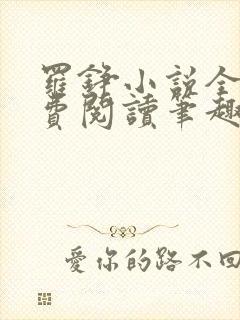 羅錚小說全
費閱讀筆趣
愛你的路不回